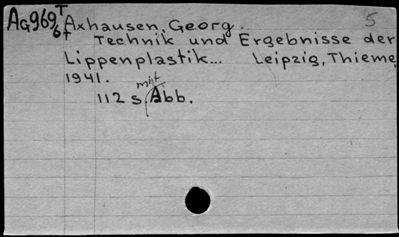 Ag969 T Axhausen, Georg. 5
6t Technik und Ergebnisse der
Lippenplastik... Leipzig, Thieme,
1941.
112 s. mit Abb.